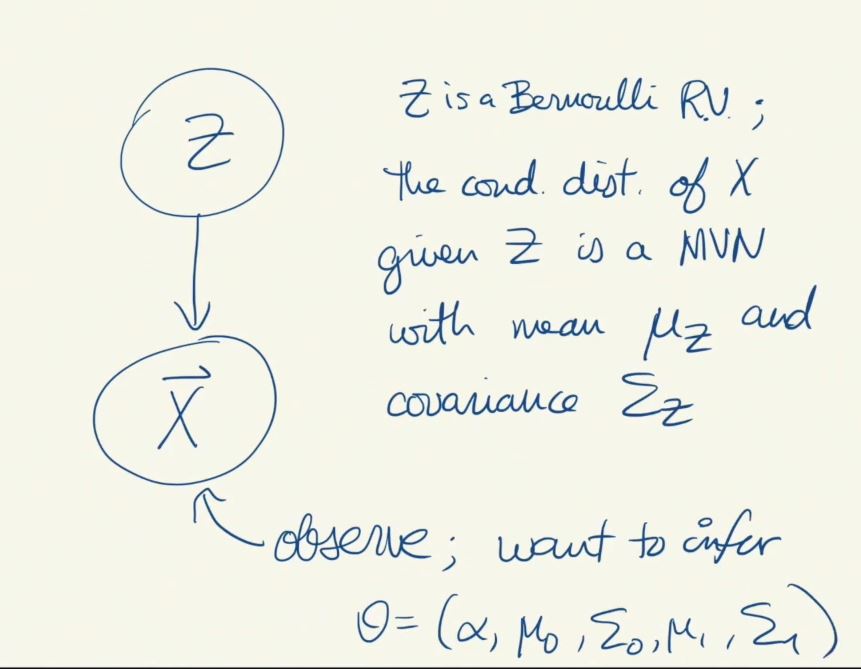 Z
Z is a Bernoulli R.V. ;
the cond. dist. of X
given Z is a MVN
with mean μ_Z and
covariance Σ_Z
X⃗
observe; want to infer
θ = (α, μ₀, Σ₀, μ₁, Σ₁)